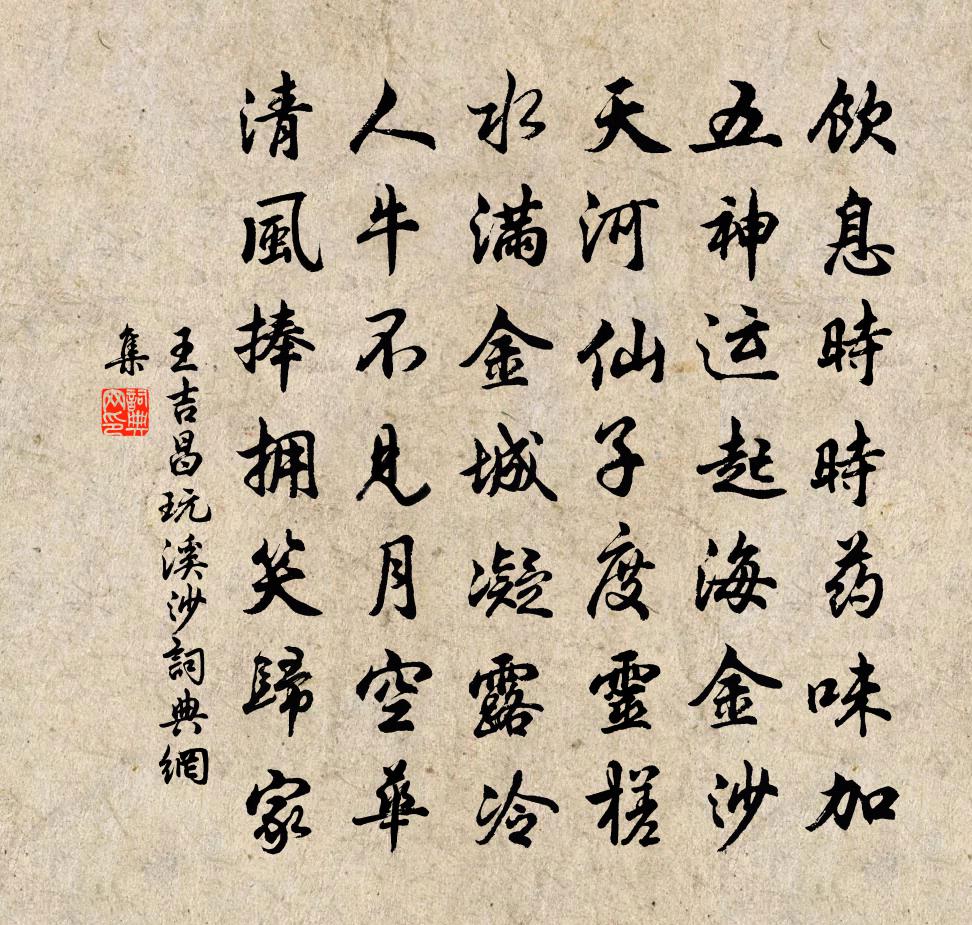 飲息時時药味加
五神运起海金沙
天河仙子度靈槎
水满金城凝露冷
人牛不見月空華
清風捧拥笑歸家
王吉昌玩溪沙詞典網
集
詞典
网印